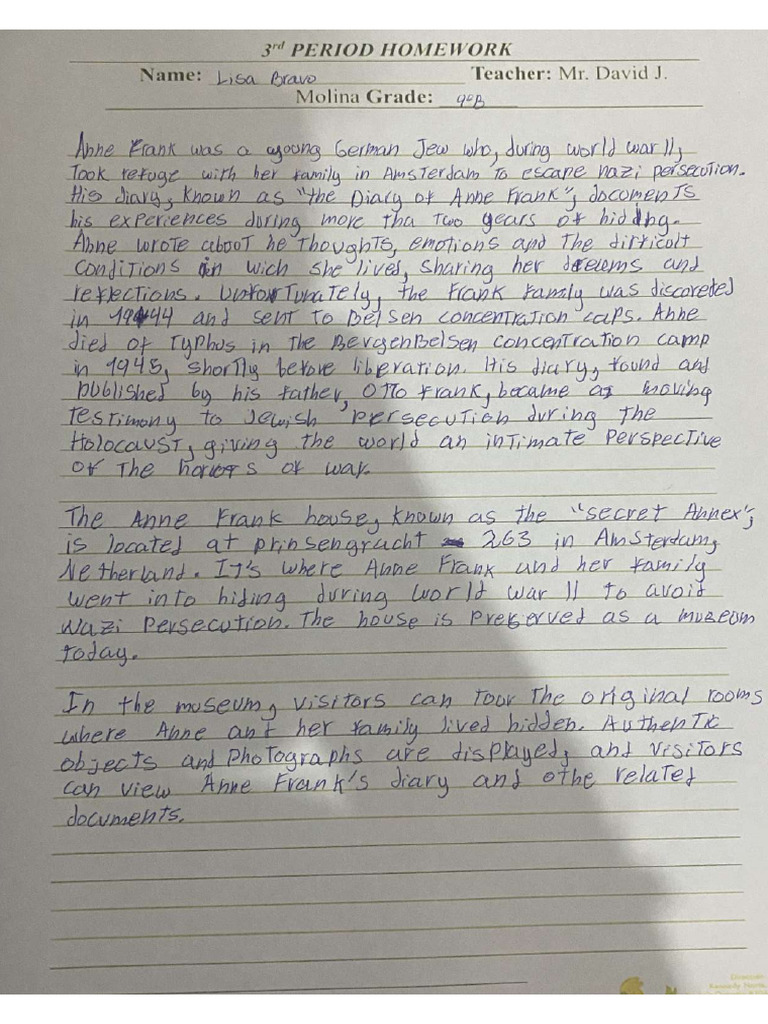 3rd PERIOD HOMEWORK
Name: Lisa Bravo Teacher: Mr. David J.
Molina Grade: 9ºB
Anne Frank was a young German Jew who, during world war II,
Took refuge with her family in Amsterdam To escape nazi persecution.
His diary, known as "the Diary of Anne Frank", documents
his experiences during more tha Two years of hidding.
Anne wrote about he Thoughts, emotions and The difficult
conditions in wich she lived, sharing her dreems and
reflections. Unfortunately, the Frank Family was discoreted
in 1944 and sent to Belsen concentration caps. Anne
died of Typhus in The BergenBelsen concentration camp
in 1945, shortly before liberation. His diary, found and
published by his father, Otto Frank, became a moving
Testimony to Jewish persecution during The
Holocaust, giving the world an intimate perspective
of The horrors of war.
The Anne Frank house, known as the "secret Annex",
is located at prinsengracht 263 in Amsterdam,
Netherland. IT's where Anne Frank and her family
went into hiding during world war II to avoid
Nazi Persecution. The house is preserved as a museom
today.
In the museum, visitors can tour The original rooms
where Anne ant her family lived hidden. Authentic
objects and photographs are displayed, and visitors
can view Anne Frank's diary and othe related
documents.